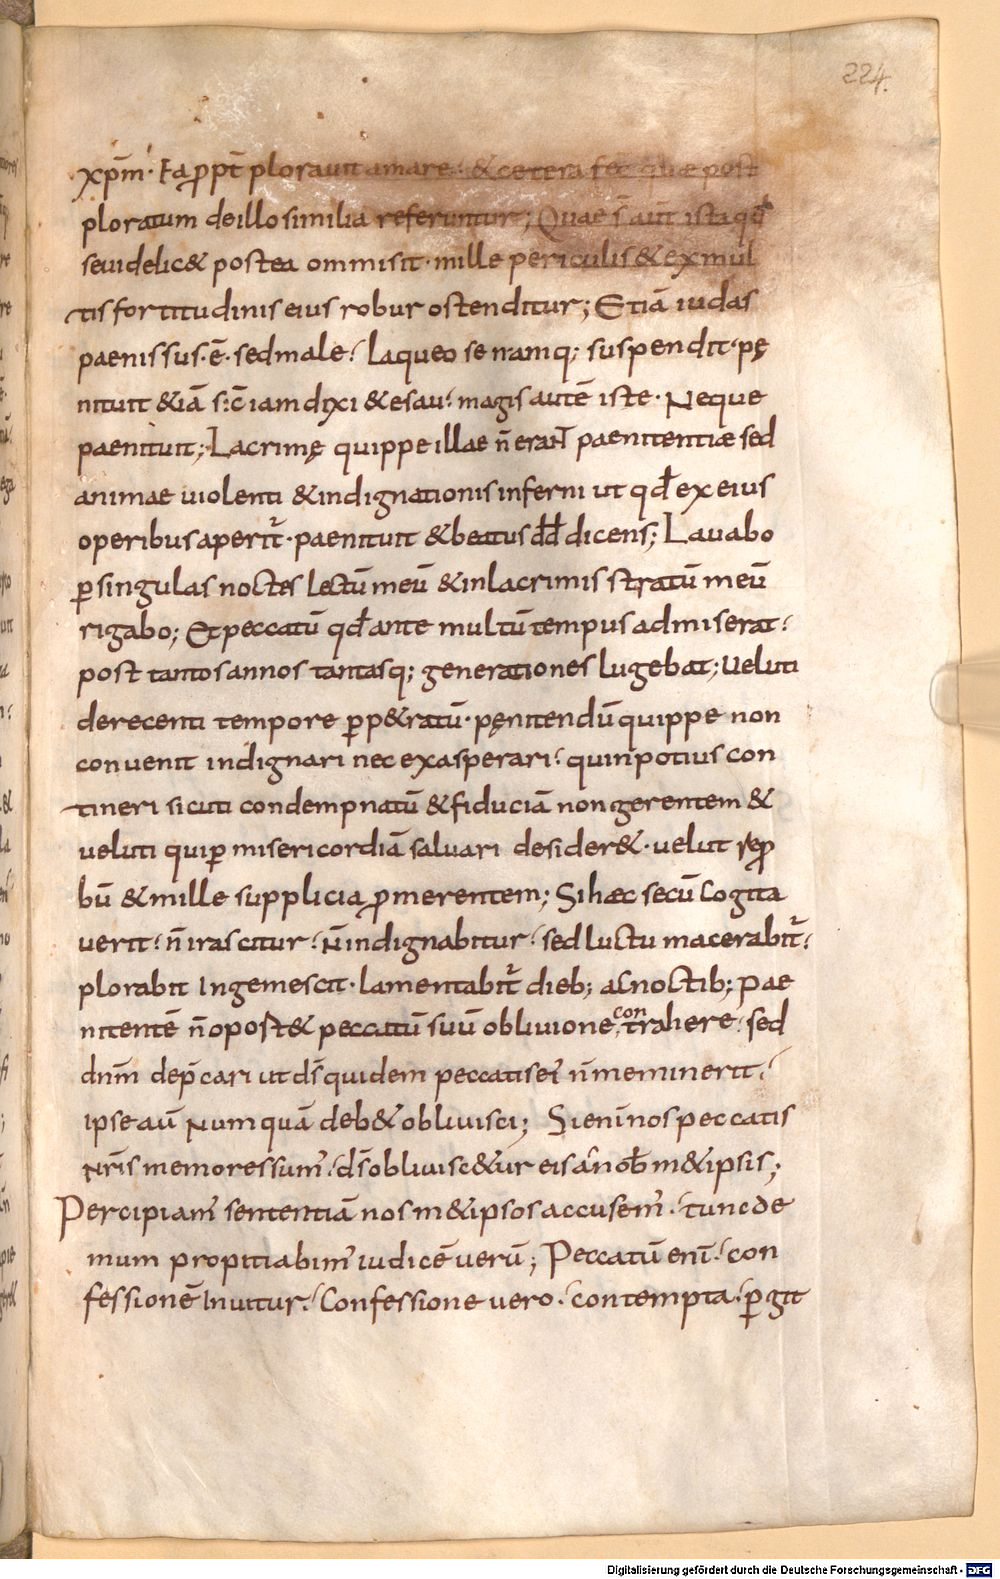 224.
xp̄m· Ea ꝓpt̄ plorauit amare· & cetera fec̄ quae post
ploratum de illo similia referuntur; Quae s̄ aut̄ ista qđ
seuidelic& postea ommisit· mille periculis & ex mul
tis fortitudinis eius robur ostenditur; Etiā iudas
paenissus·ē· sed male· laqueo se namq; suspendit· pę
nituit &iā s:c̄ iam dixi & esau· magis autē iste· Neque
paenituit; Lacrimę quippe illae n̄ eraNT paenitentiae sed
animae uiolenti & indignationis inferni ut qđ ex eius
operibus aperit̄· paenituit & beatus đđ dicens; Lauabo
ꝑ singulas noctes lectū meū & in lacrimis stratū meū
rigabo; Et peccatū qđ ante multū tempus admiserat·
post tantos annos tantasq; generationes lugebat; Ueluti
de recenti tempore ꝑp&ratū· pęnitendū quippe non
conuenit indignari nec exasperari· quin potius con
tineri sicuti condempnatū & fiduciā non gerentem &
ueluti qui ꝑ misericordiā saluari desider&· uelut repro
bū & mille supplicia ꝓmerentem; Si haec secū cogita
uerit· n̄ irascitur· N̄ indignabitur· sed luctu macerabit̄·
plorabit Ingemescit· lamentabit̄ dieb; ac noctib; Pae
nitentē n̄ opost& peccatū suū obliuione contrahere· sed
dn̄m dep̄cari ut ds̄ quidem peccatis ei n̄ meminerit·
Ipse aū Numquā deb& obliuisci; Si enī nos peccatis
Nr̄is memores sum̄· ds̄ obliuisc&ur eis ā nob̄ m&ipsis;
Percipiam̄ sententiā nosm&ipsos accusem̄· tunc de
mum propitiabim̄ iudicē uerū; Peccatū enī· con
fessionē Inuitur· Confessione uero· contempta· ꝑgit
Digitalisierung gefördert durch die Deutsche Forschungsgemeinschaft - DFG